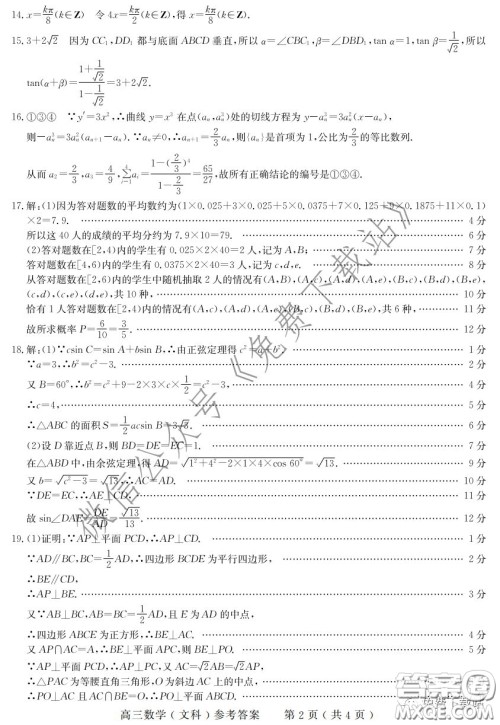 14. x=kπ/8(k∈Z)　令4x=kπ/2(k∈Z),得 x=kπ/8(k∈Z).
15. 3+2√2　因为 CC₁,DD₁ 都与底面 ABCD 垂直,所以 α=∠CBC₁,β=∠DBD₁,tan α=1,tan β=1/√2,所以
tan(α+β)=(1+1/√2)/(1-1/√2)=3+2√2.
16. ①③④　∵y′=3x²,∴曲线 y=x³ 在点(aₙ,aₙ³)处的切线方程为 y-aₙ³=3aₙ²(x-aₙ),
则-aₙ³=3aₙ²(aₙ₊₁-aₙ). ∵aₙ≠0,∴aₙ₊₁=2/3aₙ,则{aₙ}是首项为1,公比为2/3的等比数列.
从而 a₂=2/3,a₃=4/9,
17.解:(1)因为答对题数的平均数约为(1×0.025+3×0.025+5×0.0375+7×0.125+9×0.1875+11×0.1)
×2=7.9. 4分
所以这40人的成绩的平均分约为7.9×10=79. 6分
(2)答对题数在[2,4)内的学生有0.025×2×40=2人,记为A,B; 7分
答对题数在[4,6)内的学生有0.0375×2×40=3人,记为c,d,e. 8分
从答对题数在[2,6)内的学生中随机抽取2人的情况有(A,B),(A,c),(A,d),(A,e),(B,c),(B,d),(B,e),
(c,d),(c,e),(d,e),共10种, 10分
恰有1人答对题数在[2,4)内的情况有(A,c),(A,d),(A,e),(B,c),(B,d),(B,e),共6种, 11分
故所求概率 P=6/10=3/5. 12分
18.解:(1)∵csin C=sin A+bsin B,∴由正弦定理得 c²=a+b². 1分
∵a=3,∴b²=c²-3. 2分
又B=60°,∴b²=c²+9-2×3×c×1/2=c²-3, 4分
∴c=4, 5分
∴△ABC 的面积 S=1/2acsin B=3√3. 6分
(2)设D靠近点B,则 BD=DE=EC=1. 7分
在△ABD中,由余弦定理,得 AD=√(1²+4²-2×1×4×cos 60°)=√13. 9分
又 b=√(c²-3)=√13,∴AC=AD. 10分
∵DE=EC,∴AE⊥CD. 11分
故 sin∠DAE=DE/AD=√13/13. 12分
19.(1)证明:∵AP⊥平面PCD,∴AP⊥CD. 1分
∵AD∥BC,BC=1/2AD,∴四边形BCDE为平行四边形, 2分
∴BE∥CD,
∴AP⊥BE. 3分
又∵AB⊥BC,AB=BC=1/2AD,且E为AD的中点,
∴四边形ABCE为正方形,∴BE⊥AC. 4分
又AP∩AC=A,∴BE⊥平面APC,则BE⊥PO. 5分
∵AP⊥平面PCD,∴AP⊥PC,又AC=√2AB=√2AP,
∴△PAC为等腰直角三角形,O为斜边AC上的中点,
∴PO⊥AC且AC∩BE=O,
高三数学(文科)参考答案　第2页(共4页)
微信公众号《免费下载站》
答案